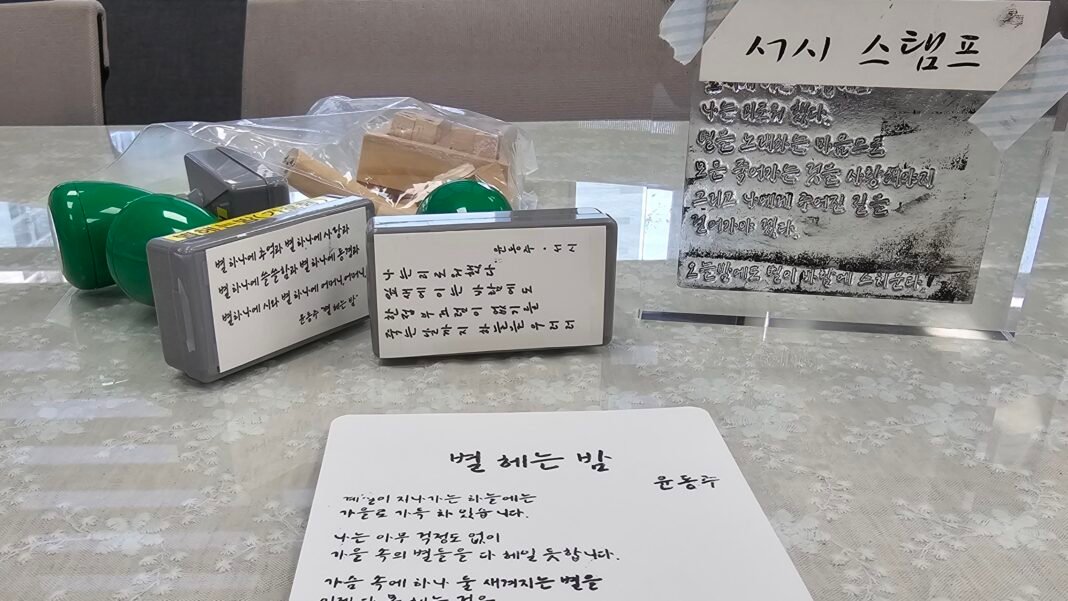 서시 스탬프
나는 괴로워 했다.
별을 노래하는 마음으로
모든 죽어가는 것을 사랑해야지
그리고 나에게 주어진 길을
걸어가야 겠다.
오늘밤에도 별이 바람에 스치운다.
별 하나에 추억과 별 하나에 사랑과
별 하나에 쓸쓸함과 별 하나에 동경과
별 하나에 시와 별 하나에 어머니, 어머니,
윤동주 "별 헤는 밤"
윤동주 · 서시
나는 괴로워했다
잎새에 이는 바람에도
한점 부끄럼이 없기를
죽는 날까지 하늘을 우러러
별 헤는 밤
윤동주
계절이 지나가는 하늘에는
가을로 가득 차 있습니다.
나는 아무 걱정도 없이
가을 속의 별들을 다 헤일 듯합니다.
가슴 속에 하나 둘 새겨지는 별을